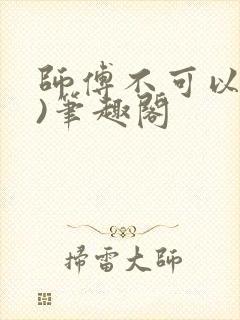 師傅不可以
)筆趣閣
掃雷大師